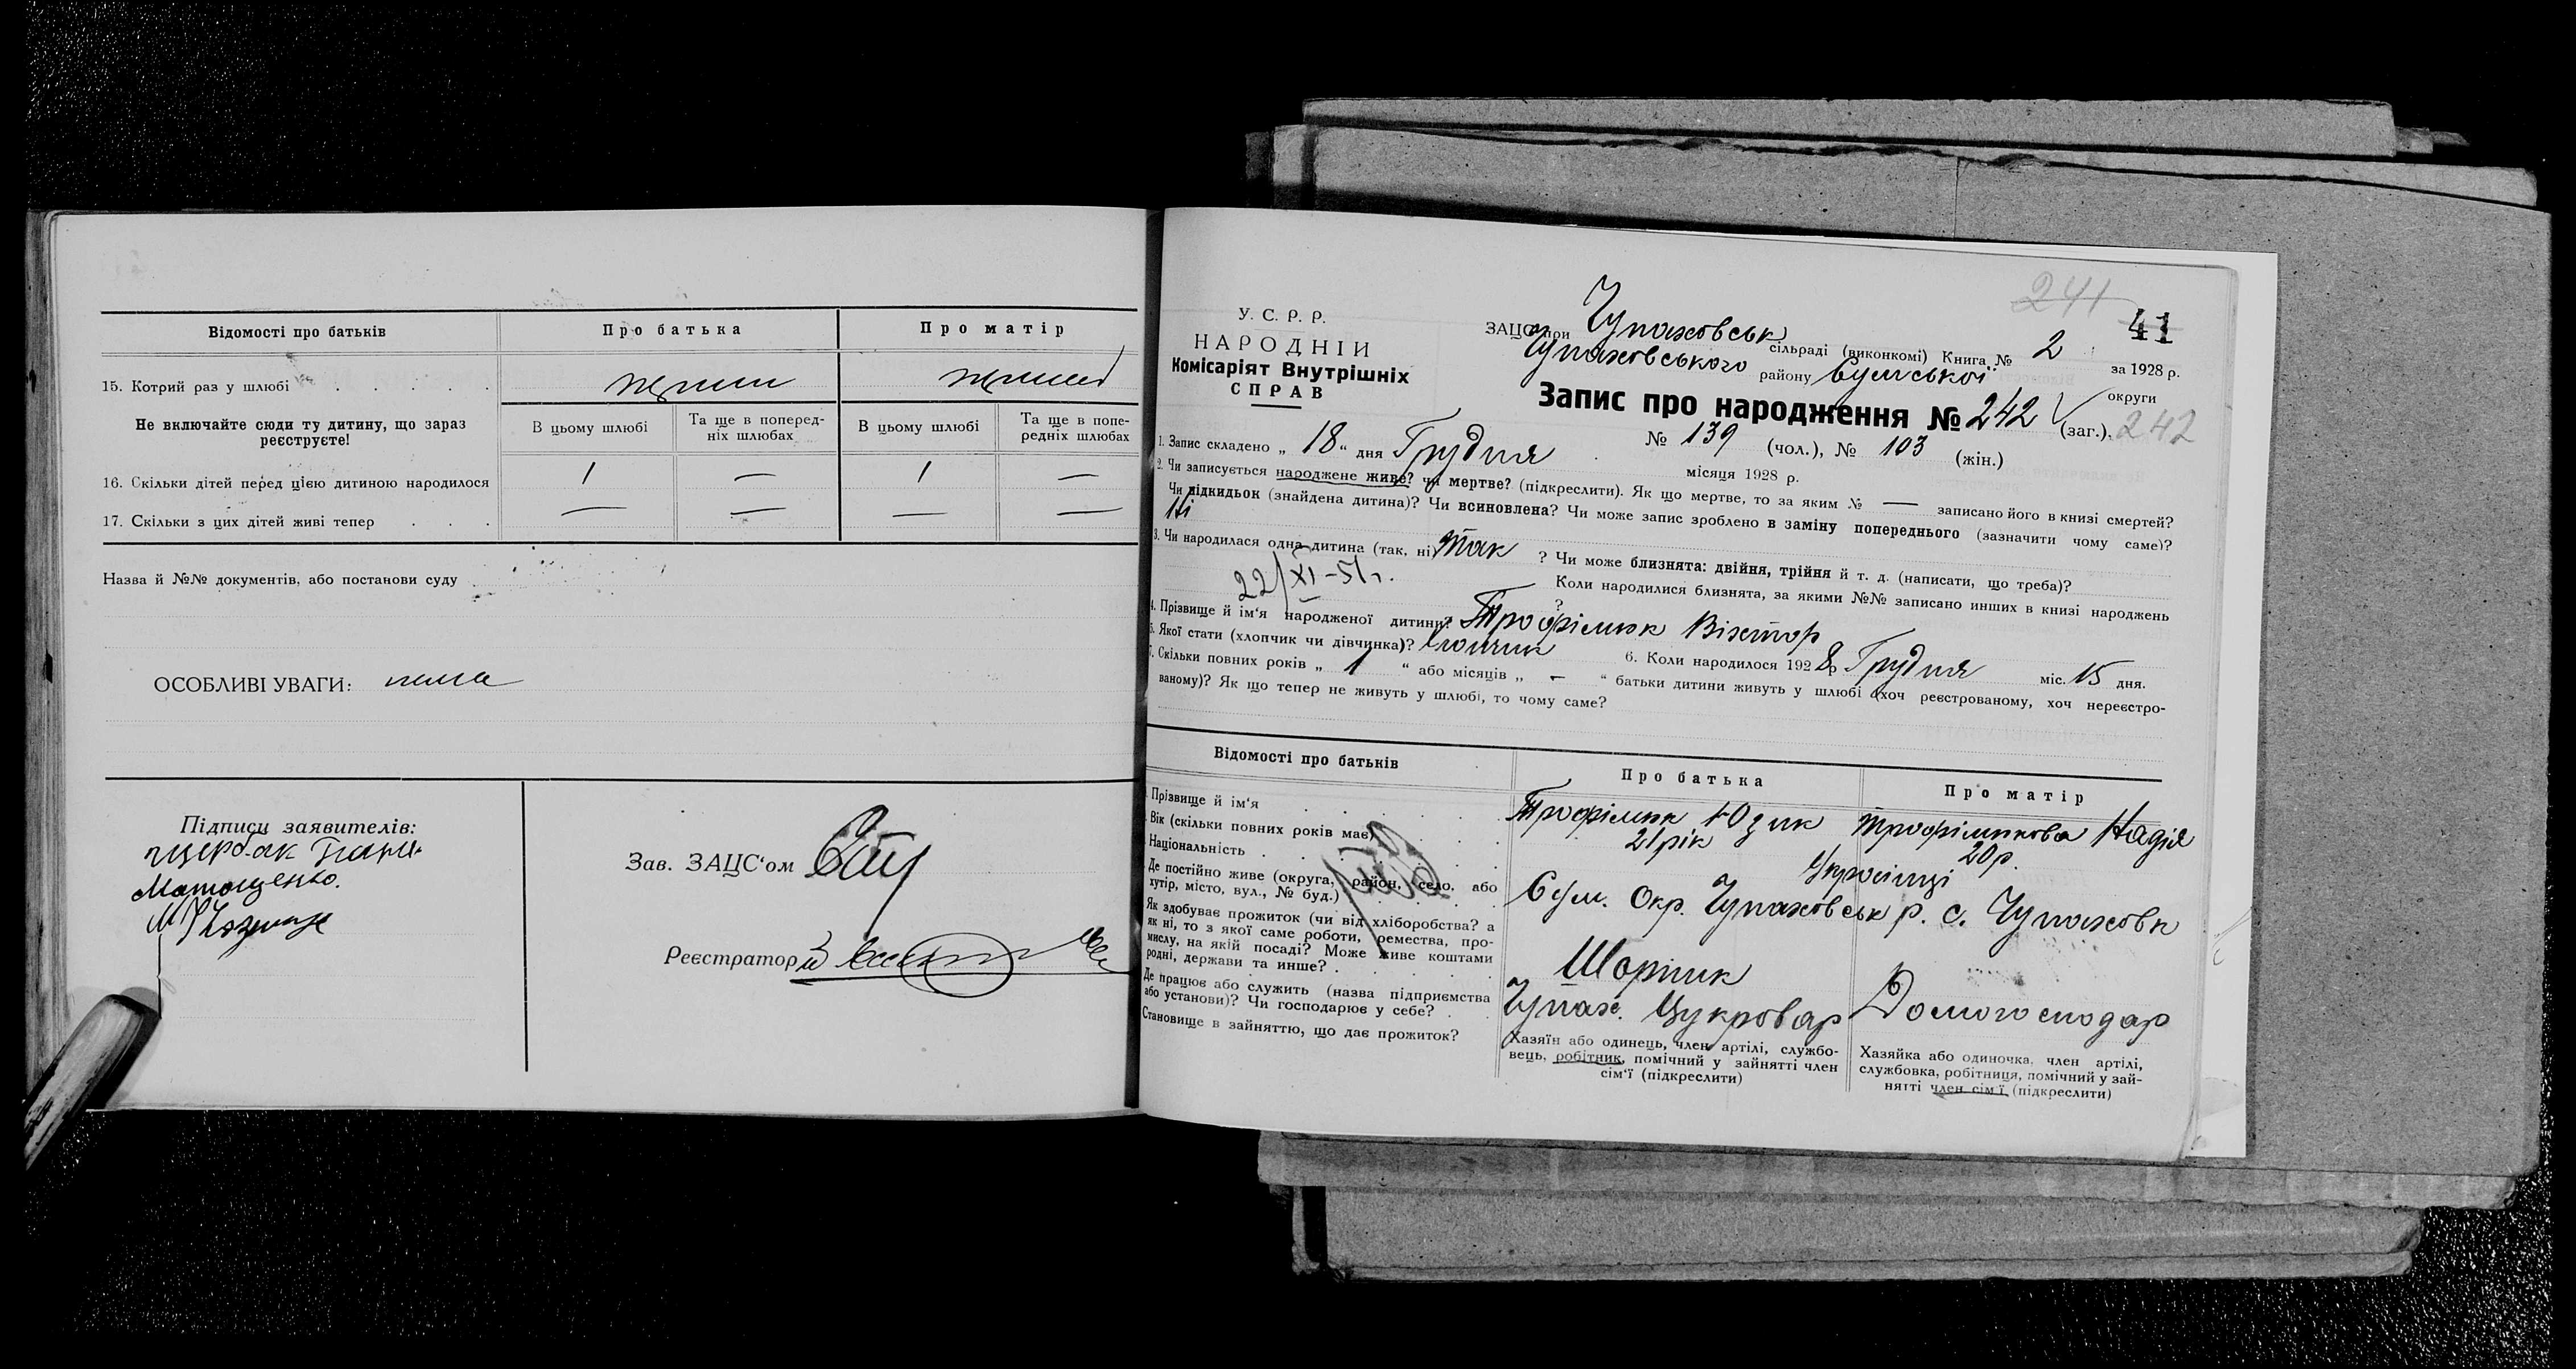 Відомості про батьків
Про батька
Про матір
15. Котрий раз у шлюбі
перший
перший
Не включайте сюди ту дитину, що зараз реєструєте!
В цьому шлюбі
Та ще в поперед-
ніх шлюбах
В цьому шлюбі
Та ще в попе-
редніх шлюбах
16. Скільки дітей перед цією дитиною народилося
1 — 1 —
17. Скільки з цих дітей живі тепер
— — — —
Назва й №№ документів, або постанови суду
ОСОБЛИВІ УВАГИ: нема
Підписи заявителів:
Матющенко.
Зав. ЗАЦС'ом
Реєстратор
241
41
У. С. Р. Р.
НАРОДНІЙ
Комісаріят Внутрішніх
СПРАВ
ЗАЦС при Чупаховськ сільраді (виконкомі) Книга № 2 за 1928 р.
Чупаховського району Сумської округи
Запис про народження № 242 (заг.). 242
№ 139 (чол.), № 103 (жін.)
1. Запис складено „ 18 " дня Грудня місяця 1928 р.
2. Чи записується народжене живе? чи мертве? (підкреслити). Як що мертве, то за яким № — записано його в книзі смертей?
Чи підкидьок (знайдена дитина)? Чи всиновлена? Чи може запис зроблено в заміну попереднього (зазначити чому саме)?
Ні
3. Чи народилася одна дитина (так, ні) так ? Чи може близнята: двійня, трійня й т. д. (написати, що треба)?
22/XI-51г.
Коли народилися близнята, за якими №№ записано инших в книзі народжень
?
4. Прізвище й ім'я народженої дитини? Трофімюк Віктор
5. Якої стати (хлопчик чи дівчинка)? хлопчик 6. Коли народилося 1928 р Грудня міс. 15 дня.
7. Скільки повних років „ 1 " або місяців „ — " батьки дитини живуть у шлюбі (хоч реєстрованому, хоч нереєстро-
ваному)? Як що тепер не живуть у шлюбі, то чому саме?
Відомості про батьків
Про батька
Про матір
Прізвище й ім'я
Трофімюк Юзик
Трофімюкова Надія
Вік (скільки повних років має)
21 рік
20 р.
Національність
Українці
Де постійно живе (округа, район, село, або
хутір, місто, вул., № буд.)
Сум. Окр. Чупаховськ р. с. Чупаховк
Як здобуває прожиток (чи від хліборобства? а
як ні, то з якої саме роботи, ремества, про-
мислу, на якій посаді? Може живе коштами
родні, держави та инше?
Шорник
Де працює або служить (назва підприємства
або установи)? Чи господарює у себе?
Чупах. Цукровар
Домогосподар
Становище в зайняттю, що дає прожиток?
Хазяїн або одинець, член артілі, службо-
вець, робітник, помічний у зайнятті член
сім'ї (підкреслити)
Хазяйка або одиночка, член артілі,
службовка, робітниця, помічний у зай-
нятті член сім'ї (підкреслити)